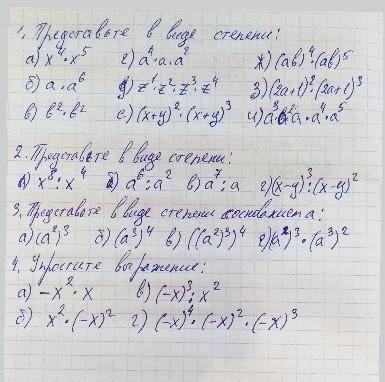 1. Представьте в виде степени:
а) x⁴·x⁵ г) a⁴·a·a² ж) (ab)⁴·(ab)⁵
б) a·a⁶ д) z¹·z²·z³·z⁴ з) (2a+1)²·(2a+1)³
в) b²·b² е) (x+y)²·(x+y)³ и) a³·a²·a·a⁴·a⁵
2. Представьте в виде степени:
а) x⁸:x⁴ б) a⁶:a² в) a⁷:a г) (x-y)³:(x-y)²
3. Представьте в виде степени с основанием a:
а) (a²)³ б) (a³)⁴ в) ((a²)³)⁴ г) (a²)³·(a³)²
4. Упростите выражение:
а) -x²·x в) (-x)³:x²
б) x²·(-x)² г) (-x)⁴·(-x)²·(-x)³